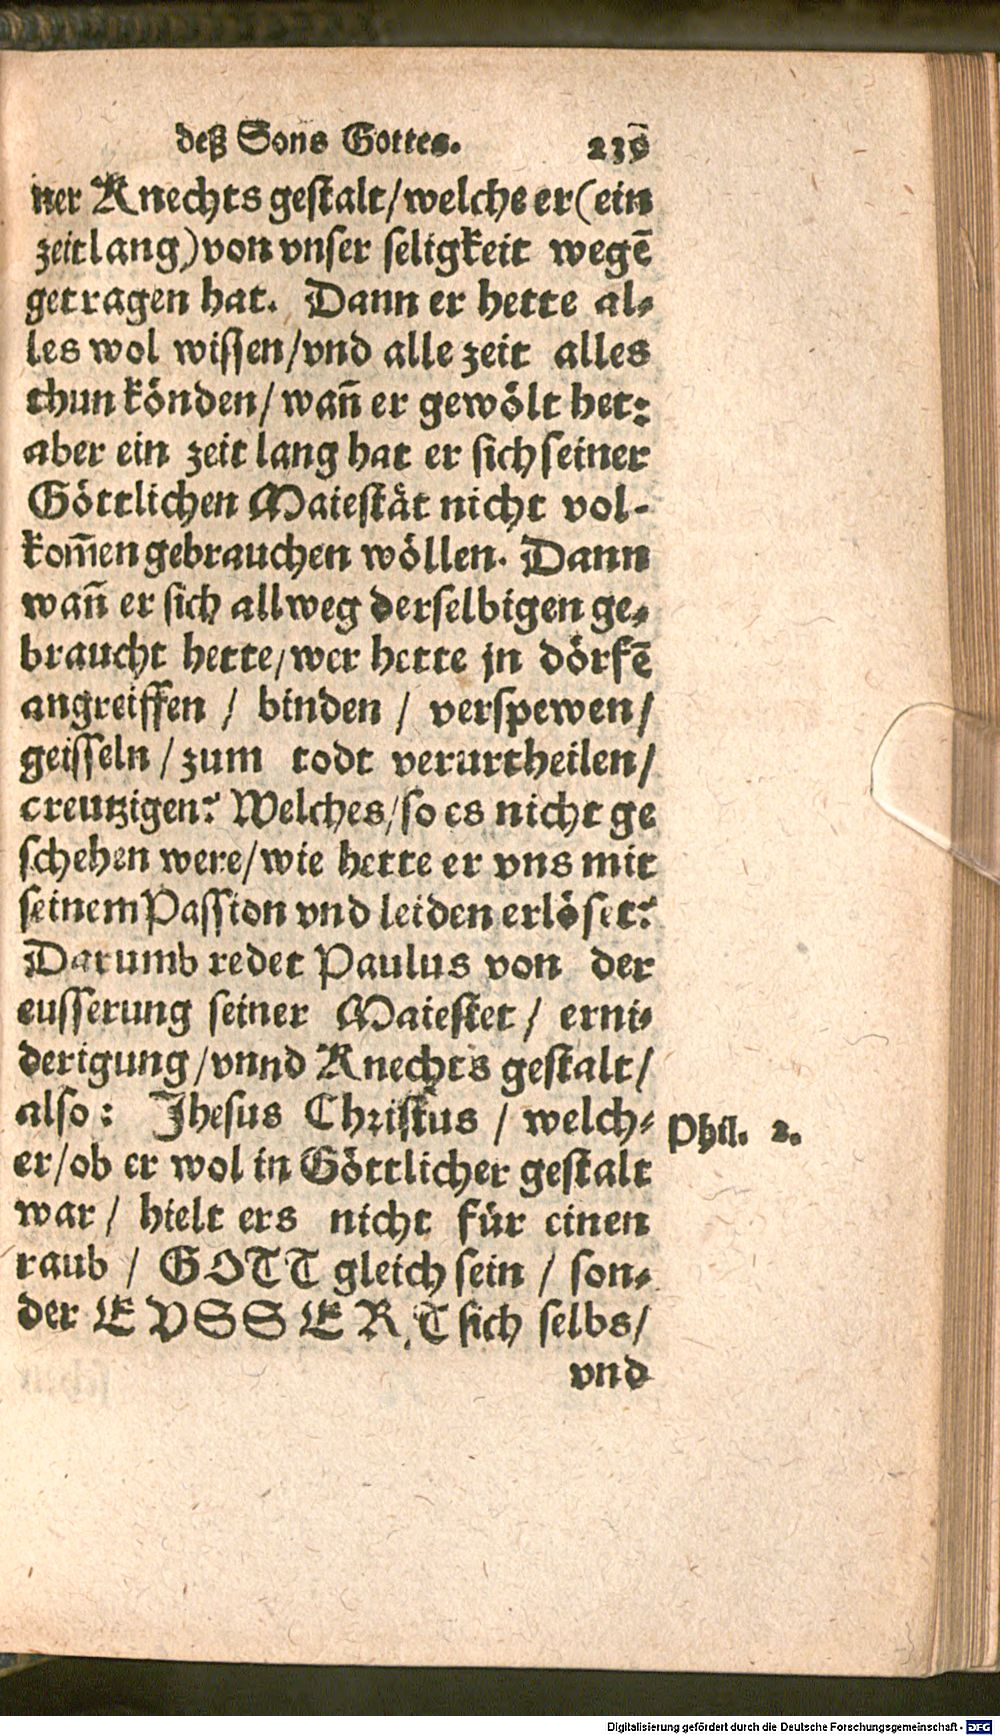 deß Sons Gottes. 230
ner Knechts gestalt/welche er(ein
zeitlang)von vnser seligkeit wegẽ
getragen hat. Dann er hette al-
les wol wissen/vnd alle zeit alles
thun könden/wañ er gewölt het:
aber ein zeit lang hat er sich seiner
Göttlichen Maiestät nicht vol-
kom̃en gebrauchen wöllen. Dann
wañ er sich allweg derselbigen ge-
braucht hette/wer hette jn dörfẽ
angreiffen / binden / verspewen/
geisseln / zum todt verurtheilen/
creutzigen? Welches/so es nicht ge
schehen were/wie hette er vns mit
seinem Passion vnd leiden erlöset?
Darumb redet Paulus von der
eusserung seiner Maiestet / erni-
derigung/vnnd Knechts gestalt/
also: Jhesus Christus / welch-
er/ob er wol in Göttlicher gestalt
war / hielt ers nicht für einen
raub / GOTT gleich sein / son-
der EVSSERT sich selbs/
vnd
Phil. 2.
Digitalisierung gefördert durch die Deutsche Forschungsgemeinschaft - DFG